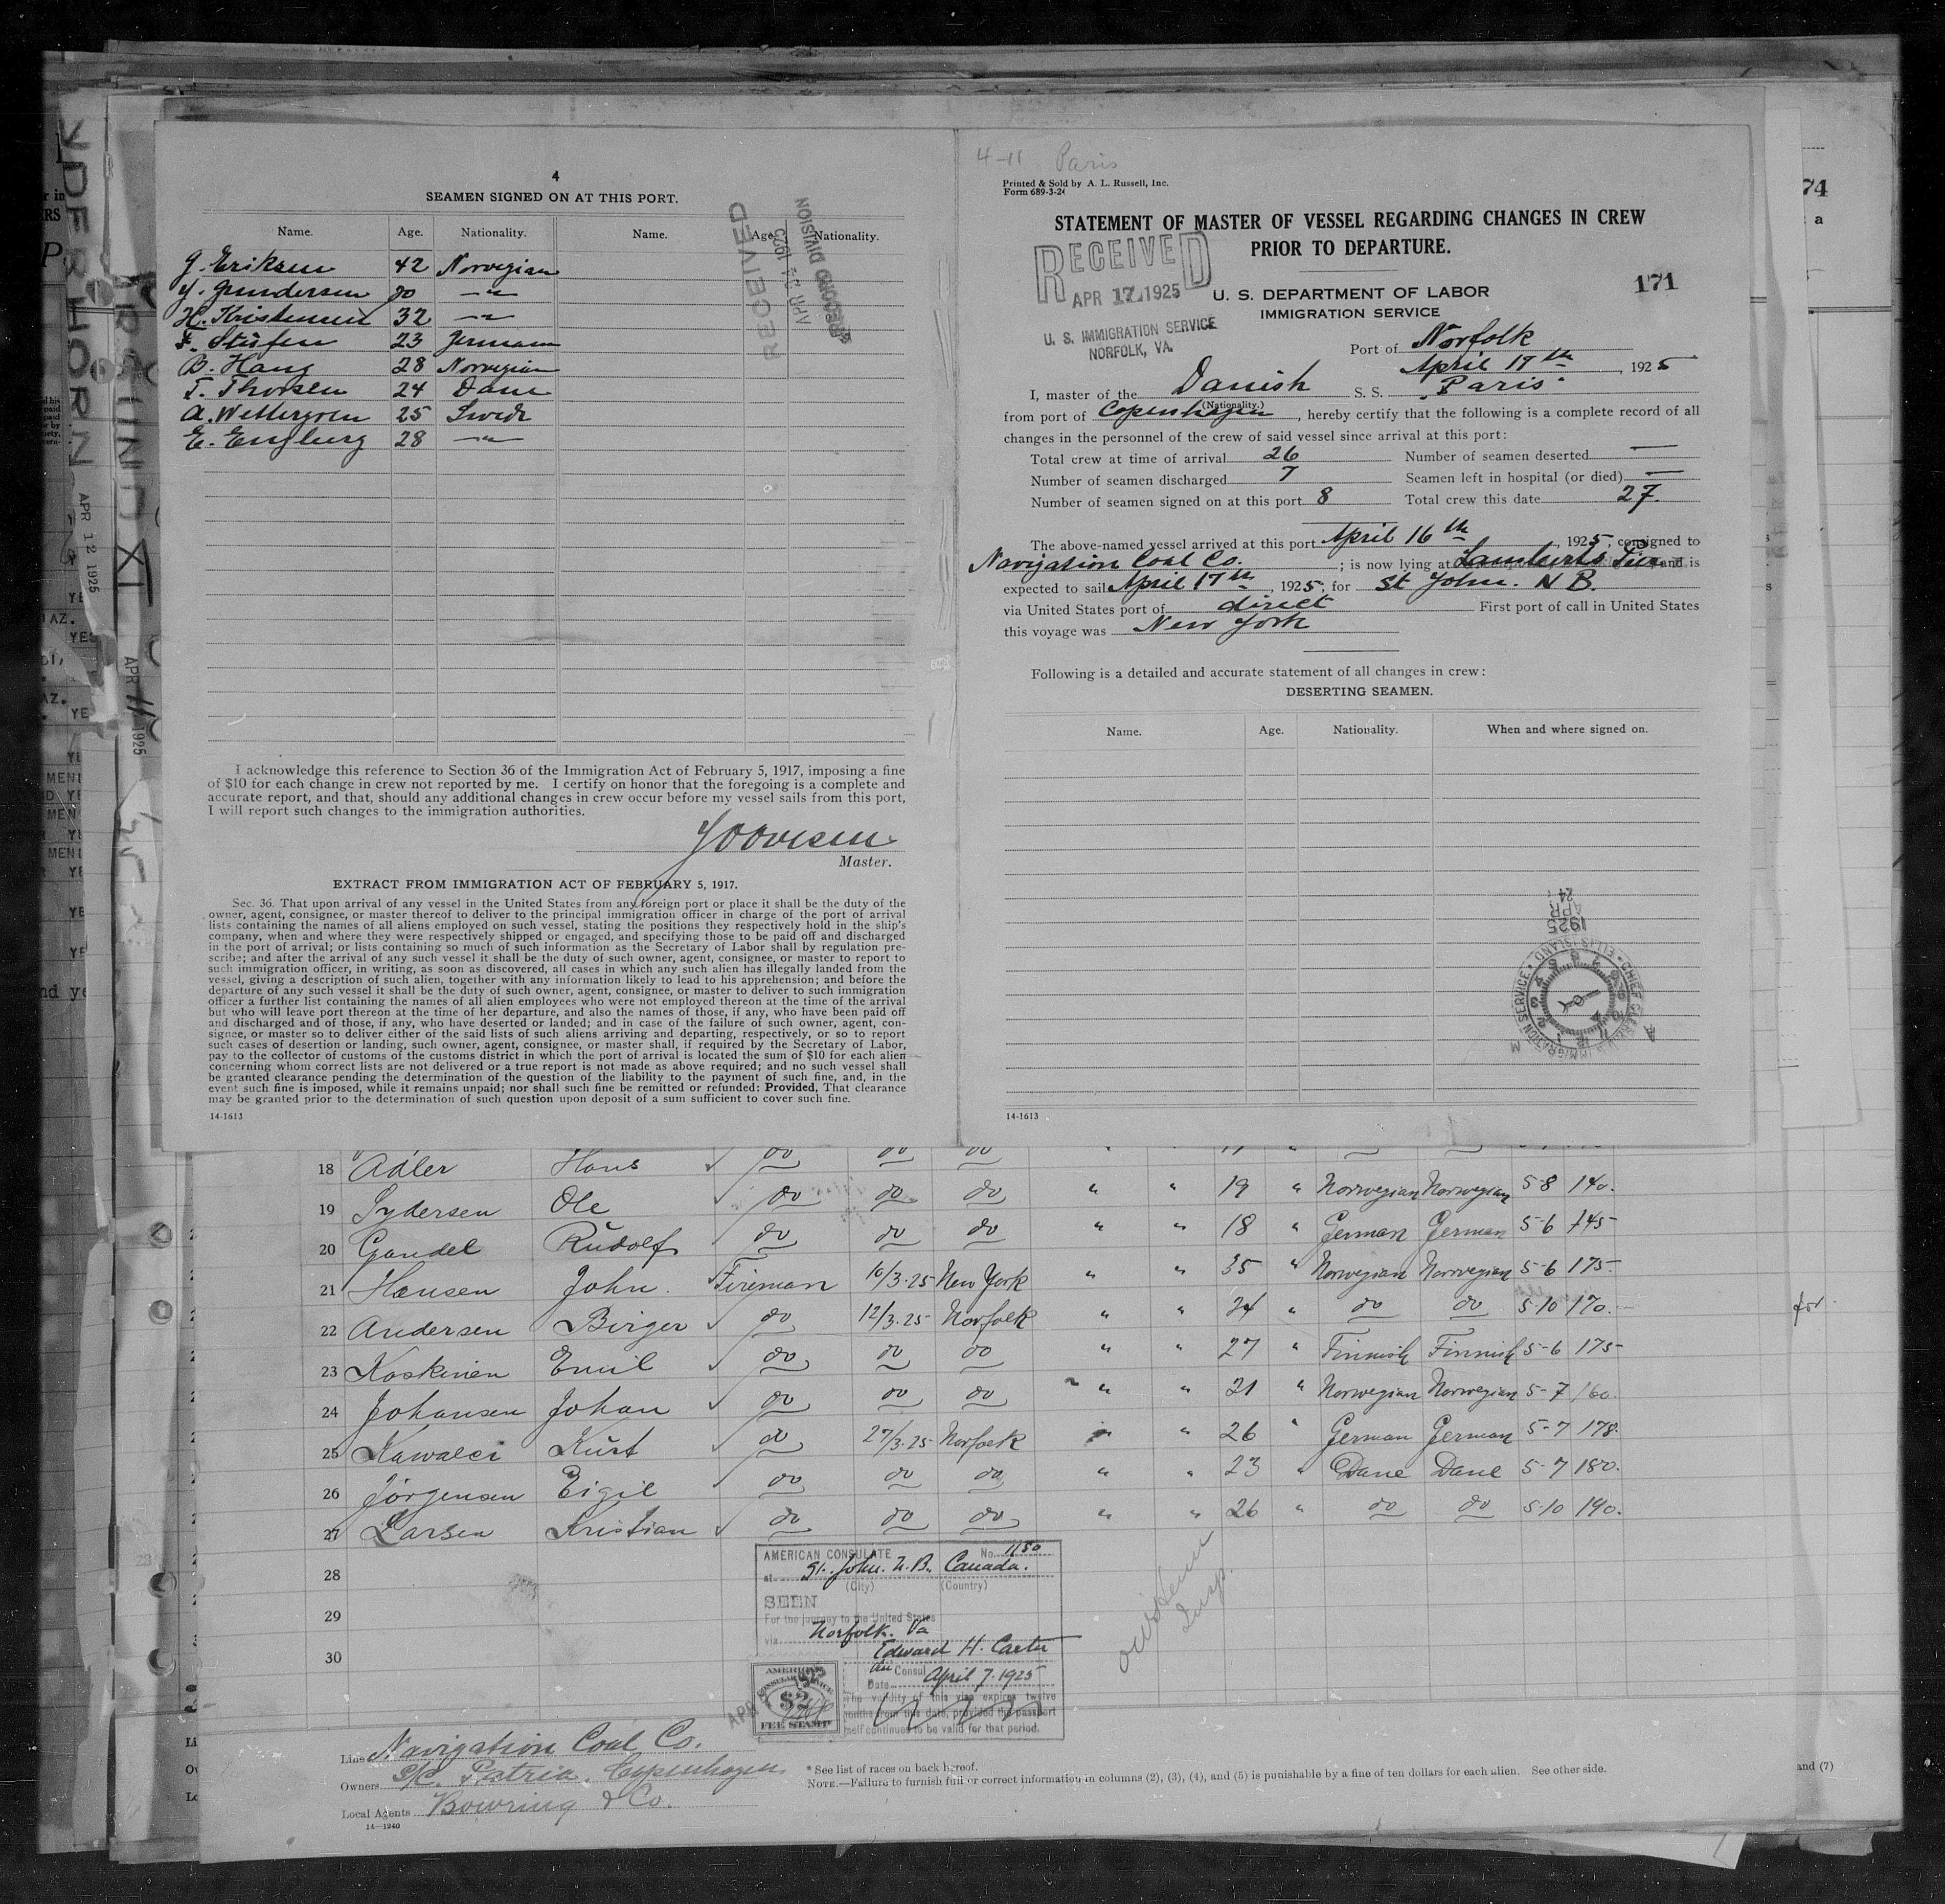 4
SEAMEN SIGNED ON AT THIS PORT.
Name. Age. Nationality. Name. Age. Nationality.
J. Eriksen 42 Norwegian
Y. Gundersen 20 —"—
H. Kristensen 32 —"—
F. Stüfen 23 German
B. Haug 28 Norwegian
T. Thorsen 24 Dane
A. Wettergren 25 Swede
E. Engberg 28 —"—
RECEIVED
APR 24 1925
RECORD DIVISION
I acknowledge this reference to Section 36 of the Immigration Act of February 5, 1917, imposing a fine
of $10 for each change in crew not reported by me. I certify on honor that the foregoing is a complete and
accurate report, and that, should any additional changes in crew occur before my vessel sails from this port,
I will report such changes to the immigration authorities.
Master.
EXTRACT FROM IMMIGRATION ACT OF FEBRUARY 5, 1917.
Sec. 36. That upon arrival of any vessel in the United States from any foreign port or place it shall be the duty of the
owner, agent, consignee, or master thereof to deliver to the principal immigration officer in charge of the port of arrival
lists containing the names of all aliens employed on such vessel, stating the positions they respectively hold in the ship's
company, when and where they were respectively shipped or engaged, and specifying those to be paid off and discharged
in the port of arrival; or lists containing so much of such information as the Secretary of Labor shall by regulation pre-
scribe; and after the arrival of any such vessel it shall be the duty of such owner, agent, consignee, or master to report to
such immigration officer, in writing, as soon as discovered, all cases in which any such alien has illegally landed from the
vessel, giving a description of such alien, together with any information likely to lead to his apprehension; and before the
departure of any such vessel it shall be the duty of such owner, agent, consignee, or master to deliver to such immigration
officer a further list containing the names of all alien employees who were not employed thereon at the time of the arrival
but who will leave port thereon at the time of her departure, and also the names of those, if any, who have been paid off
and discharged and of those, if any, who have deserted or landed; and in case of the failure of such owner, agent, con-
signee, or master so to deliver either of the said lists of such aliens arriving and departing, respectively, or so to report
such cases of desertion or landing, such owner, agent, consignee, or master shall, if required by the Secretary of Labor,
pay to the collector of customs of the customs district in which the port of arrival is located the sum of $10 for each alien
concerning whom correct lists are not delivered or a true report is not made as above required; and no such vessel shall
be granted clearance pending the determination of the question of the liability to the payment of such fine, and, in the
event such fine is imposed, while it remains unpaid; nor shall such fine be remitted or refunded: Provided, That clearance
may be granted prior to the determination of such question upon deposit of a sum sufficient to cover such fine.
14-1613
4-11 Paris
Printed & Sold by A. L. Russell, Inc.
Form 689-3-24
STATEMENT OF MASTER OF VESSEL REGARDING CHANGES IN CREW
PRIOR TO DEPARTURE.
RECEIVED
APR 17 1925
U. S. IMMIGRATION SERVICE
NORFOLK, VA.
U. S. DEPARTMENT OF LABOR
IMMIGRATION SERVICE
171
Port of Norfolk
April 17th, 1925
I, master of the Danish S. S. "Paris"
(Nationality.)
from port of Copenhagen, hereby certify that the following is a complete record of all
changes in the personnel of the crew of said vessel since arrival at this port:
Total crew at time of arrival 26 Number of seamen deserted —
Number of seamen discharged 7 Seamen left in hospital (or died) —
Number of seamen signed on at this port 8 Total crew this date 27.
The above-named vessel arrived at this port April 16th, 1925, consigned to
Navigation Coal Co.; is now lying at Lamberts Pier and is
expected to sail April 17th, 1925, for St John. N B.
via United States port of direct First port of call in United States
this voyage was New York
Following is a detailed and accurate statement of all changes in crew:
DESERTING SEAMEN.
Name. Age. Nationality. When and where signed on.
1925
APR
24
14-1613
18 Adler Hans do do do
19 Sydersen Ole do do do " " 19 " Norwegian Norwegian 5-8 140.
20 Gandel Rudolf do do do " " 18 " German German 5-6 145-
21 Hansen John. Fireman 10/3-25 New York " " 35 " Norwegian Norwegian 5-6 175-
22 Andersen Birger do 12/3-25 Norfolk " " 24 " do do 5-10 170.
23 Koskinen Emil do do do " " 27 " Finnish Finnish 5-6 175-
24 Johansen Johan do do do " " 21 " Norwegian Norwegian 5-7 160.
25 Kawalci Kurt do 27/3-25 Norfolk " " 26 " German German 5-7 178.
26 Jörgensen Eigil do do do " " 23 " Dane Dane 5-7 180.
27 Larsen Kristian do do do " " 26 " do do 5-10 190.
28
29
30
AMERICAN CONSULATE No. 1150
at St. John. N.B. Canada.
(City) (Country)
SEEN
For the journey to the United States
via Norfolk. Va
Edward H. Carter
Consul
Date April 7. 1925
The validity of this visa expires twelve
months from this date, provided the passport
itself continues to be valid for that period.
AMERICAN
CONSULAR SERVICE
$2
FEE STAMP
Insp.
Line Navigation Coal Co.
Owners S/C. Patria, Copenhagen
Local Agents Bowring & Co.
14-1240
* See list of races on back hereof.
NOTE.—Failure to furnish full or correct information in columns (2), (3), (4), and (5) is punishable by a fine of ten dollars for each alien. See other side.
and (7)
74
APR 12 1925
APR 11 1925